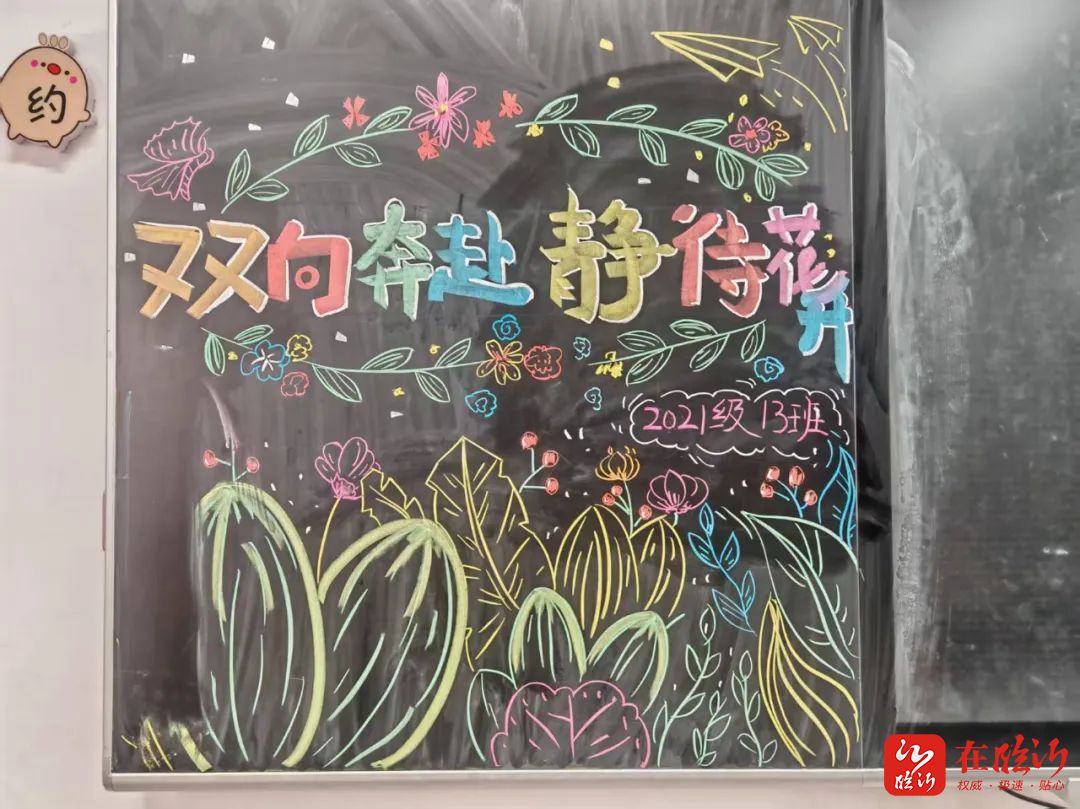 约
双向奔赴 静待花开
2021级13班
在临沂
临沂
权威·极速·贴心